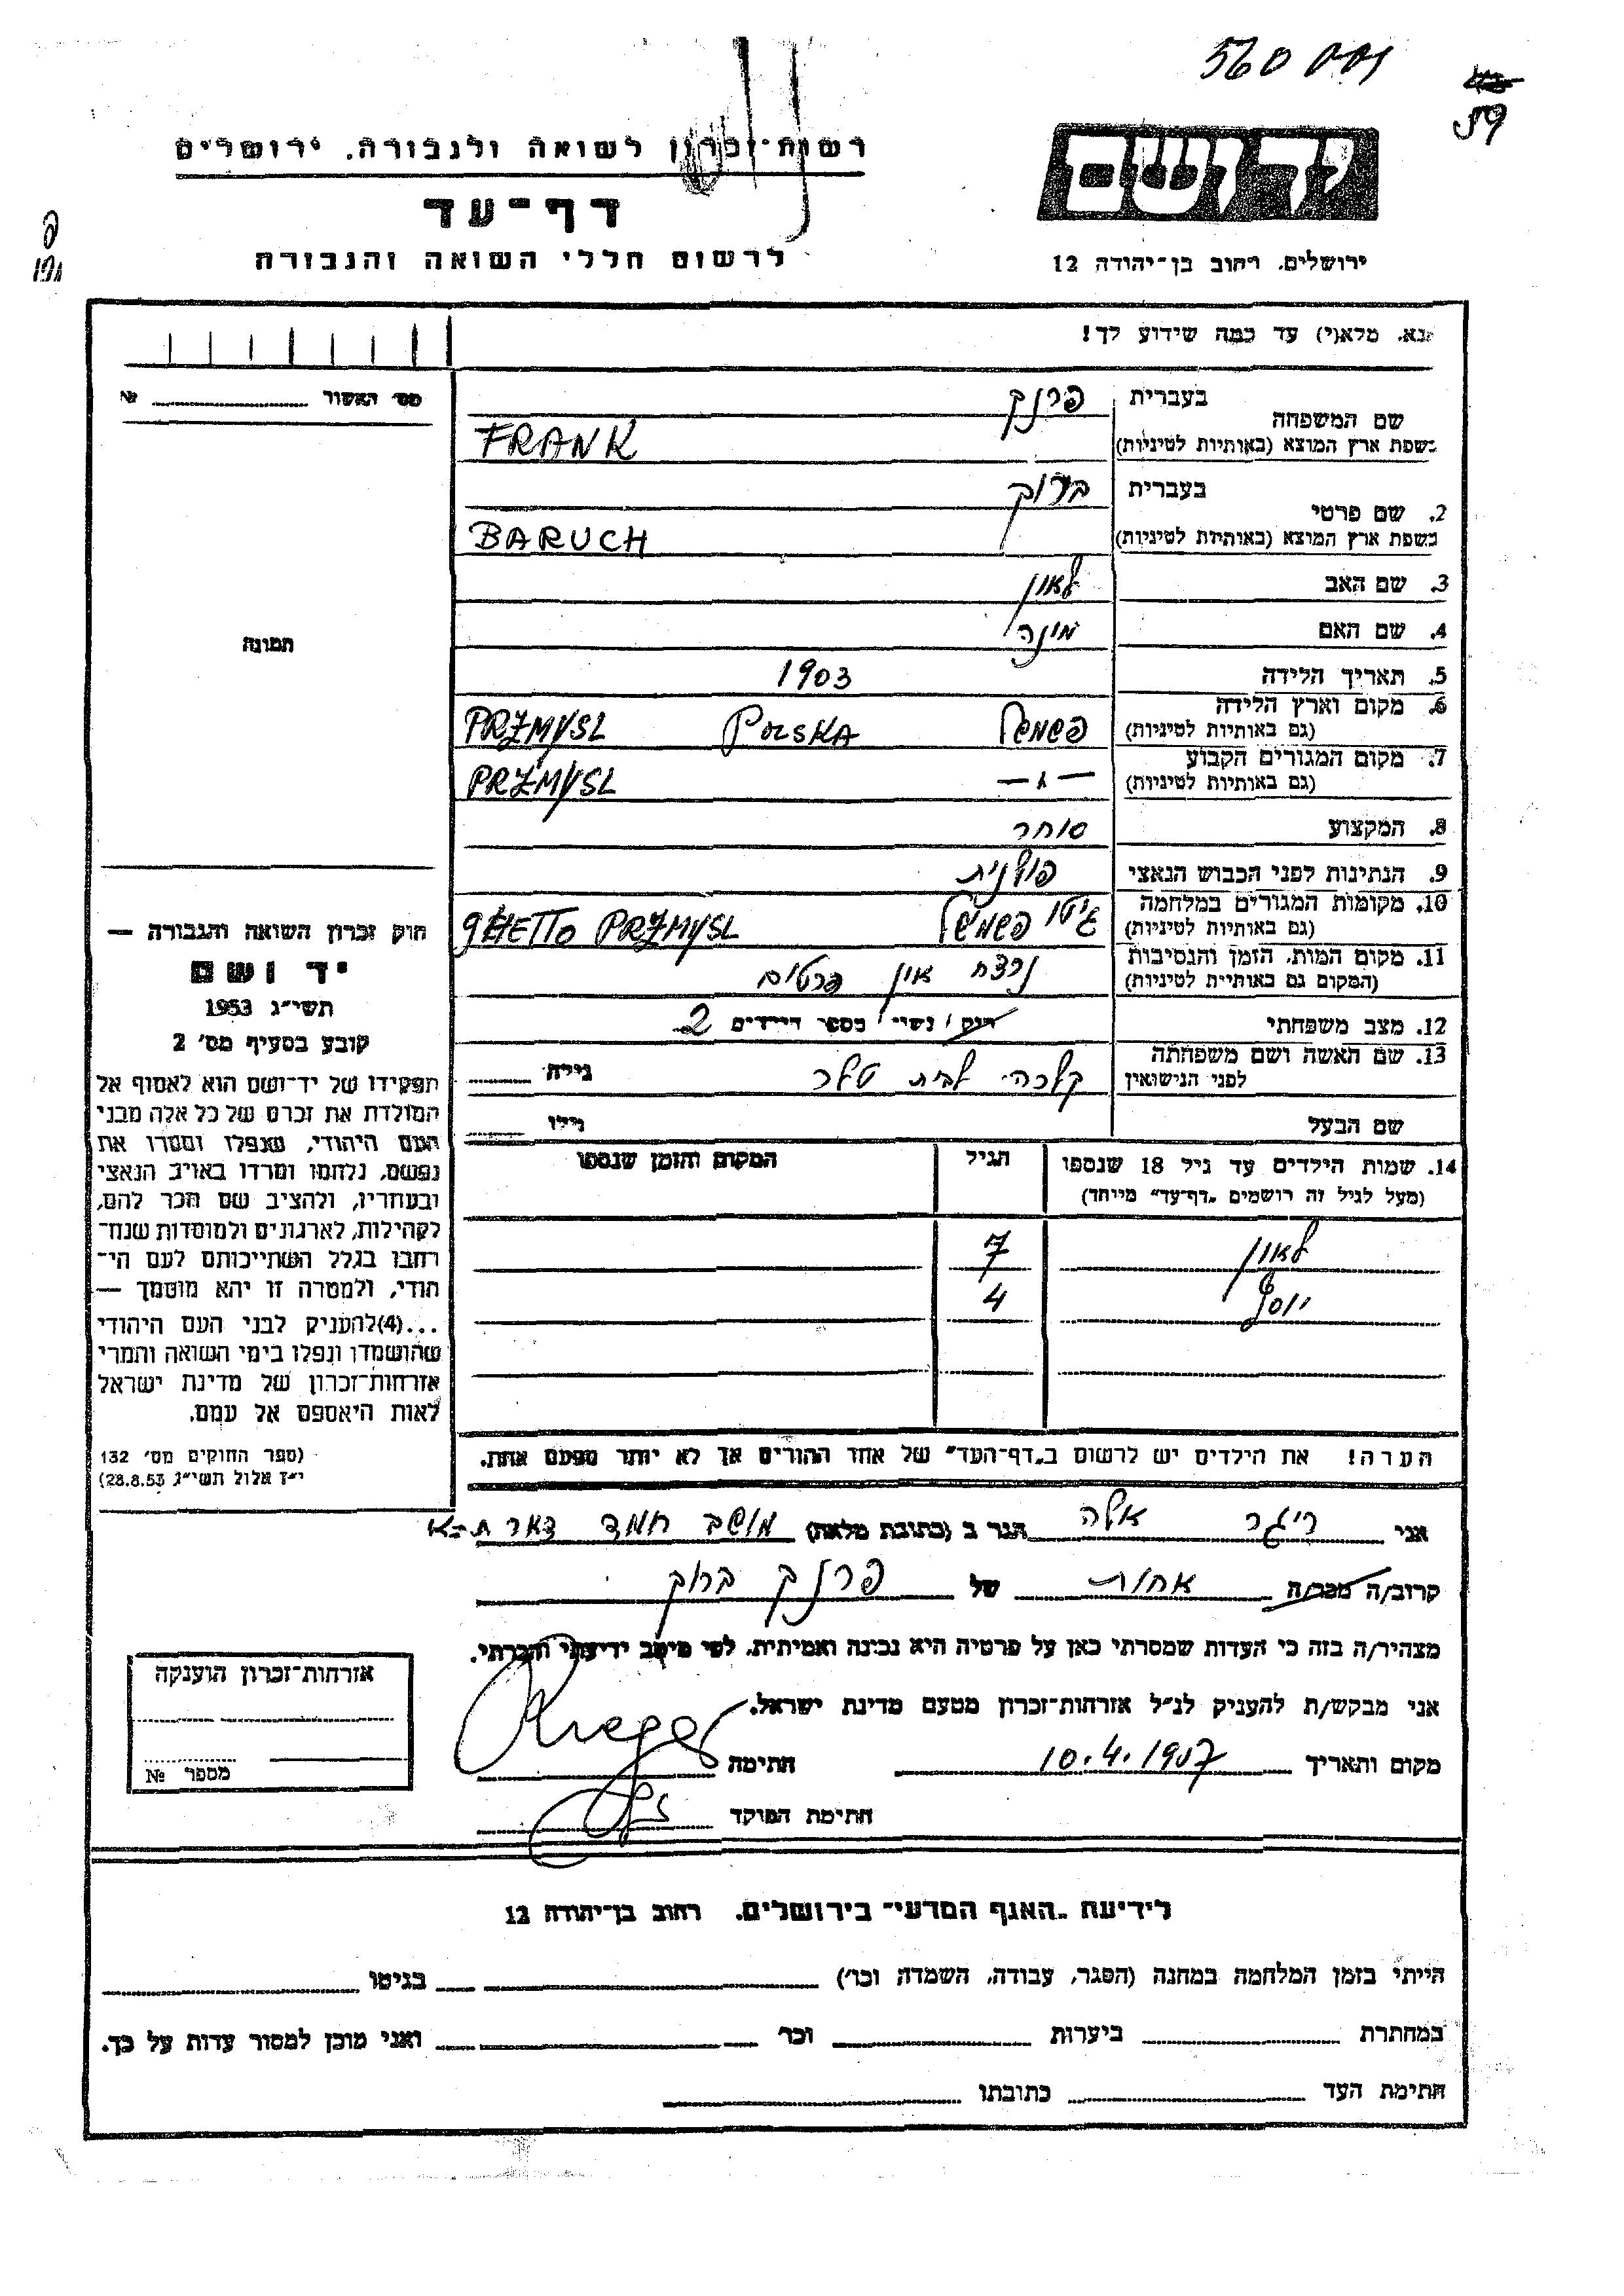 560
59
יד ושם
ירושלים, רחוב בן־יהודה 12
רשות־זכרון לשואה ולגבורה, ירושלים
דף־עד
לרשום חללי השואה והגבורה
נא, מלא(י) עד כמה שידוע לך!
מס׳ האשור № 
שם המשפחה
בעברית פרנק
בשפת ארץ המוצא (באותיות לטיניות) FRANK
2. שם פרטי
בעברית ברוך
בשפת ארץ המוצא (באותיות לטיניות) BARUCH
3. שם האב לאון
4. שם האם מינה
5. תאריך הלידה 1903
6. מקום וארץ הלידה (גם באותיות לטיניות) פשמישל POLSKA PRZMYSL
7. מקום המגורים הקבוע (גם באותיות לטיניות) — " — PRZMYSL
8. המקצוע סוחר
9. הנתינות לפני הכבוש הנאצי פולנית
10. מקומות המגורים במלחמה (גם באותיות לטיניות) גיטו פשמישל GHETTO PRZMYSL
11. מקום המות, הזמן והנסיבות (המקום גם באותיות לטיניות) נרצח אין פרטים
12. מצב משפחתי רווק / נשוי / מספר הילדים 2
13. שם האשה ושם משפחתה לפני הנישואין קלרה לבית טלר גילה
שם הבעל גילו
תמונה
חוק זכרון השואה והגבורה —
יד ושם
תשי״ג 1953
קובע בסעיף מס׳ 2
תפקידו של יד־ושם הוא לאסוף אל
המולדת את זכרם של כל אלה מבני
העם היהודי, שנפלו ומסרו את
נפשם, נלחמו ומרדו באויב הנאצי
ובעוזריו, ולהציב שם וזכר להם,
לקהילות, לארגונים ולמוסדות שנח־
רבו בגלל השתייכותם לעם הי־
הודי, ולמטרה זו יהא מוסמך —
...(4)להעניק לבני העם היהודי
שהושמדו ונפלו בימי השואה והמרי
אזרחות־זכרון של מדינת ישראל
לאות היאספם אל עמם.
(ספר החוקים מס׳ 132
י״ז אלול תשי״ג 28.8.53)
14. שמות הילדים עד גיל 18 שנספו הגיל המקום והזמן שנספו
(מעל לגיל זה רושמים „דף־עד״ מיוחד)
לאון 7
יוסף 4
הערה! את הילדים יש לרשום ב„דף־העד״ של אחד ההורים אך לא יותר מפעם אחת.
אני ריגר אלה הגר ב (כתובת מלאה) מושב חמד דאר ת-א
קרוב/ה מכר/ה אחות של פרנק ברוך
מצהיר/ה בזה כי העדות שמסרתי כאן על פרטיה היא נכונה ואמיתית, לפי מיטב ידיעתי והכרתי.
אני מבקש/ת להעניק לנ״ל אזרחות־זכרון מטעם מדינת ישראל.
מקום ותאריך 10.4.1957 חתימה
חתימת הפוקד
אזרחות־זכרון הוענקה
מספר №
לידיעת „האגף המדעי״ בירושלים, רחוב בן־יהודה 12
הייתי בזמן המלחמה במחנה (הסגר, עבודה, השמדה וכו׳) בגיטו
במחתרת ביערות וכו׳ ואני מוכן למסור עדות על כך.
חתימת העד כתובתו